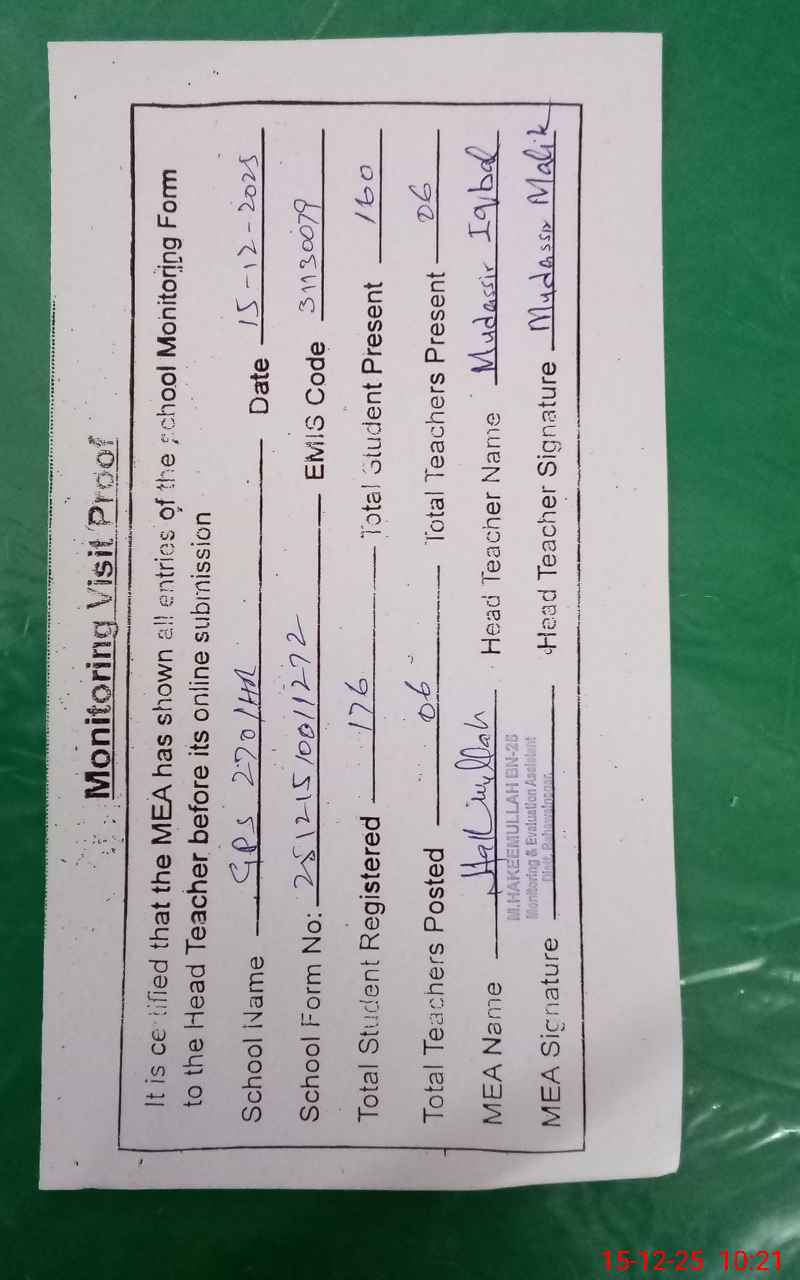 Monitoring Visit Proof
It is certified that the MEA has shown all entries of the school Monitoring Form
to the Head Teacher before its online submission
School Name GPS 270/HR Date 15-12-2025
School Form No: 25121510011272 EMIS Code 31130079
Total Student Registered 176 Total Student Present 160
Total Teachers Posted 06 Total Teachers Present 06
MEA Name Hakimullah Head Teacher Name Mudassir Iqbal
M.HAKEEMULLAH BN-25
Monitoring & Evaluation Assistant
Distt. Bahawalnagar
MEA Signature Head Teacher Signature Mudassir Malik
15-12-25 10:21